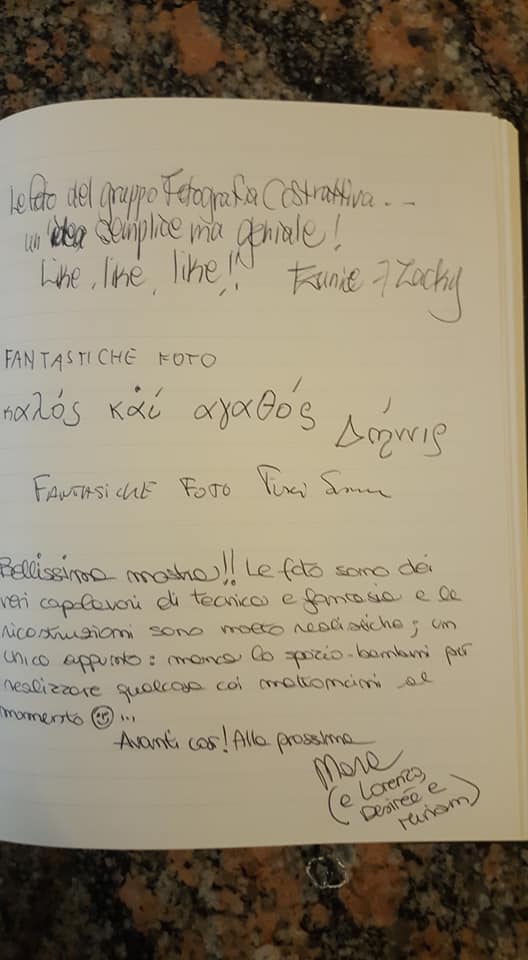 Le foto del gruppo Fotografia Costruttiva...
un'idea semplice ma geniale!
Like, like, like!! Zacky
FANTASTICHE FOTO
καλός καί αγαθός
Δήηνις
FANTASICHE FOTO
Bellissima mostra!! Le foto sono dei
veri capolavori di tecnica e fantasia e le
ricostruzioni sono molto realistiche; un
unico appunto: manca lo spazio-bambini per
realizzare qualcosa coi mattoncini al
momento ☺...
Avanti cos! Alla prossima
Mara
(e Lorenzo,
Desirée e
Miriam)